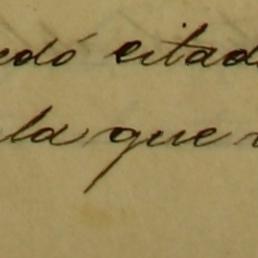 edó citad
la que